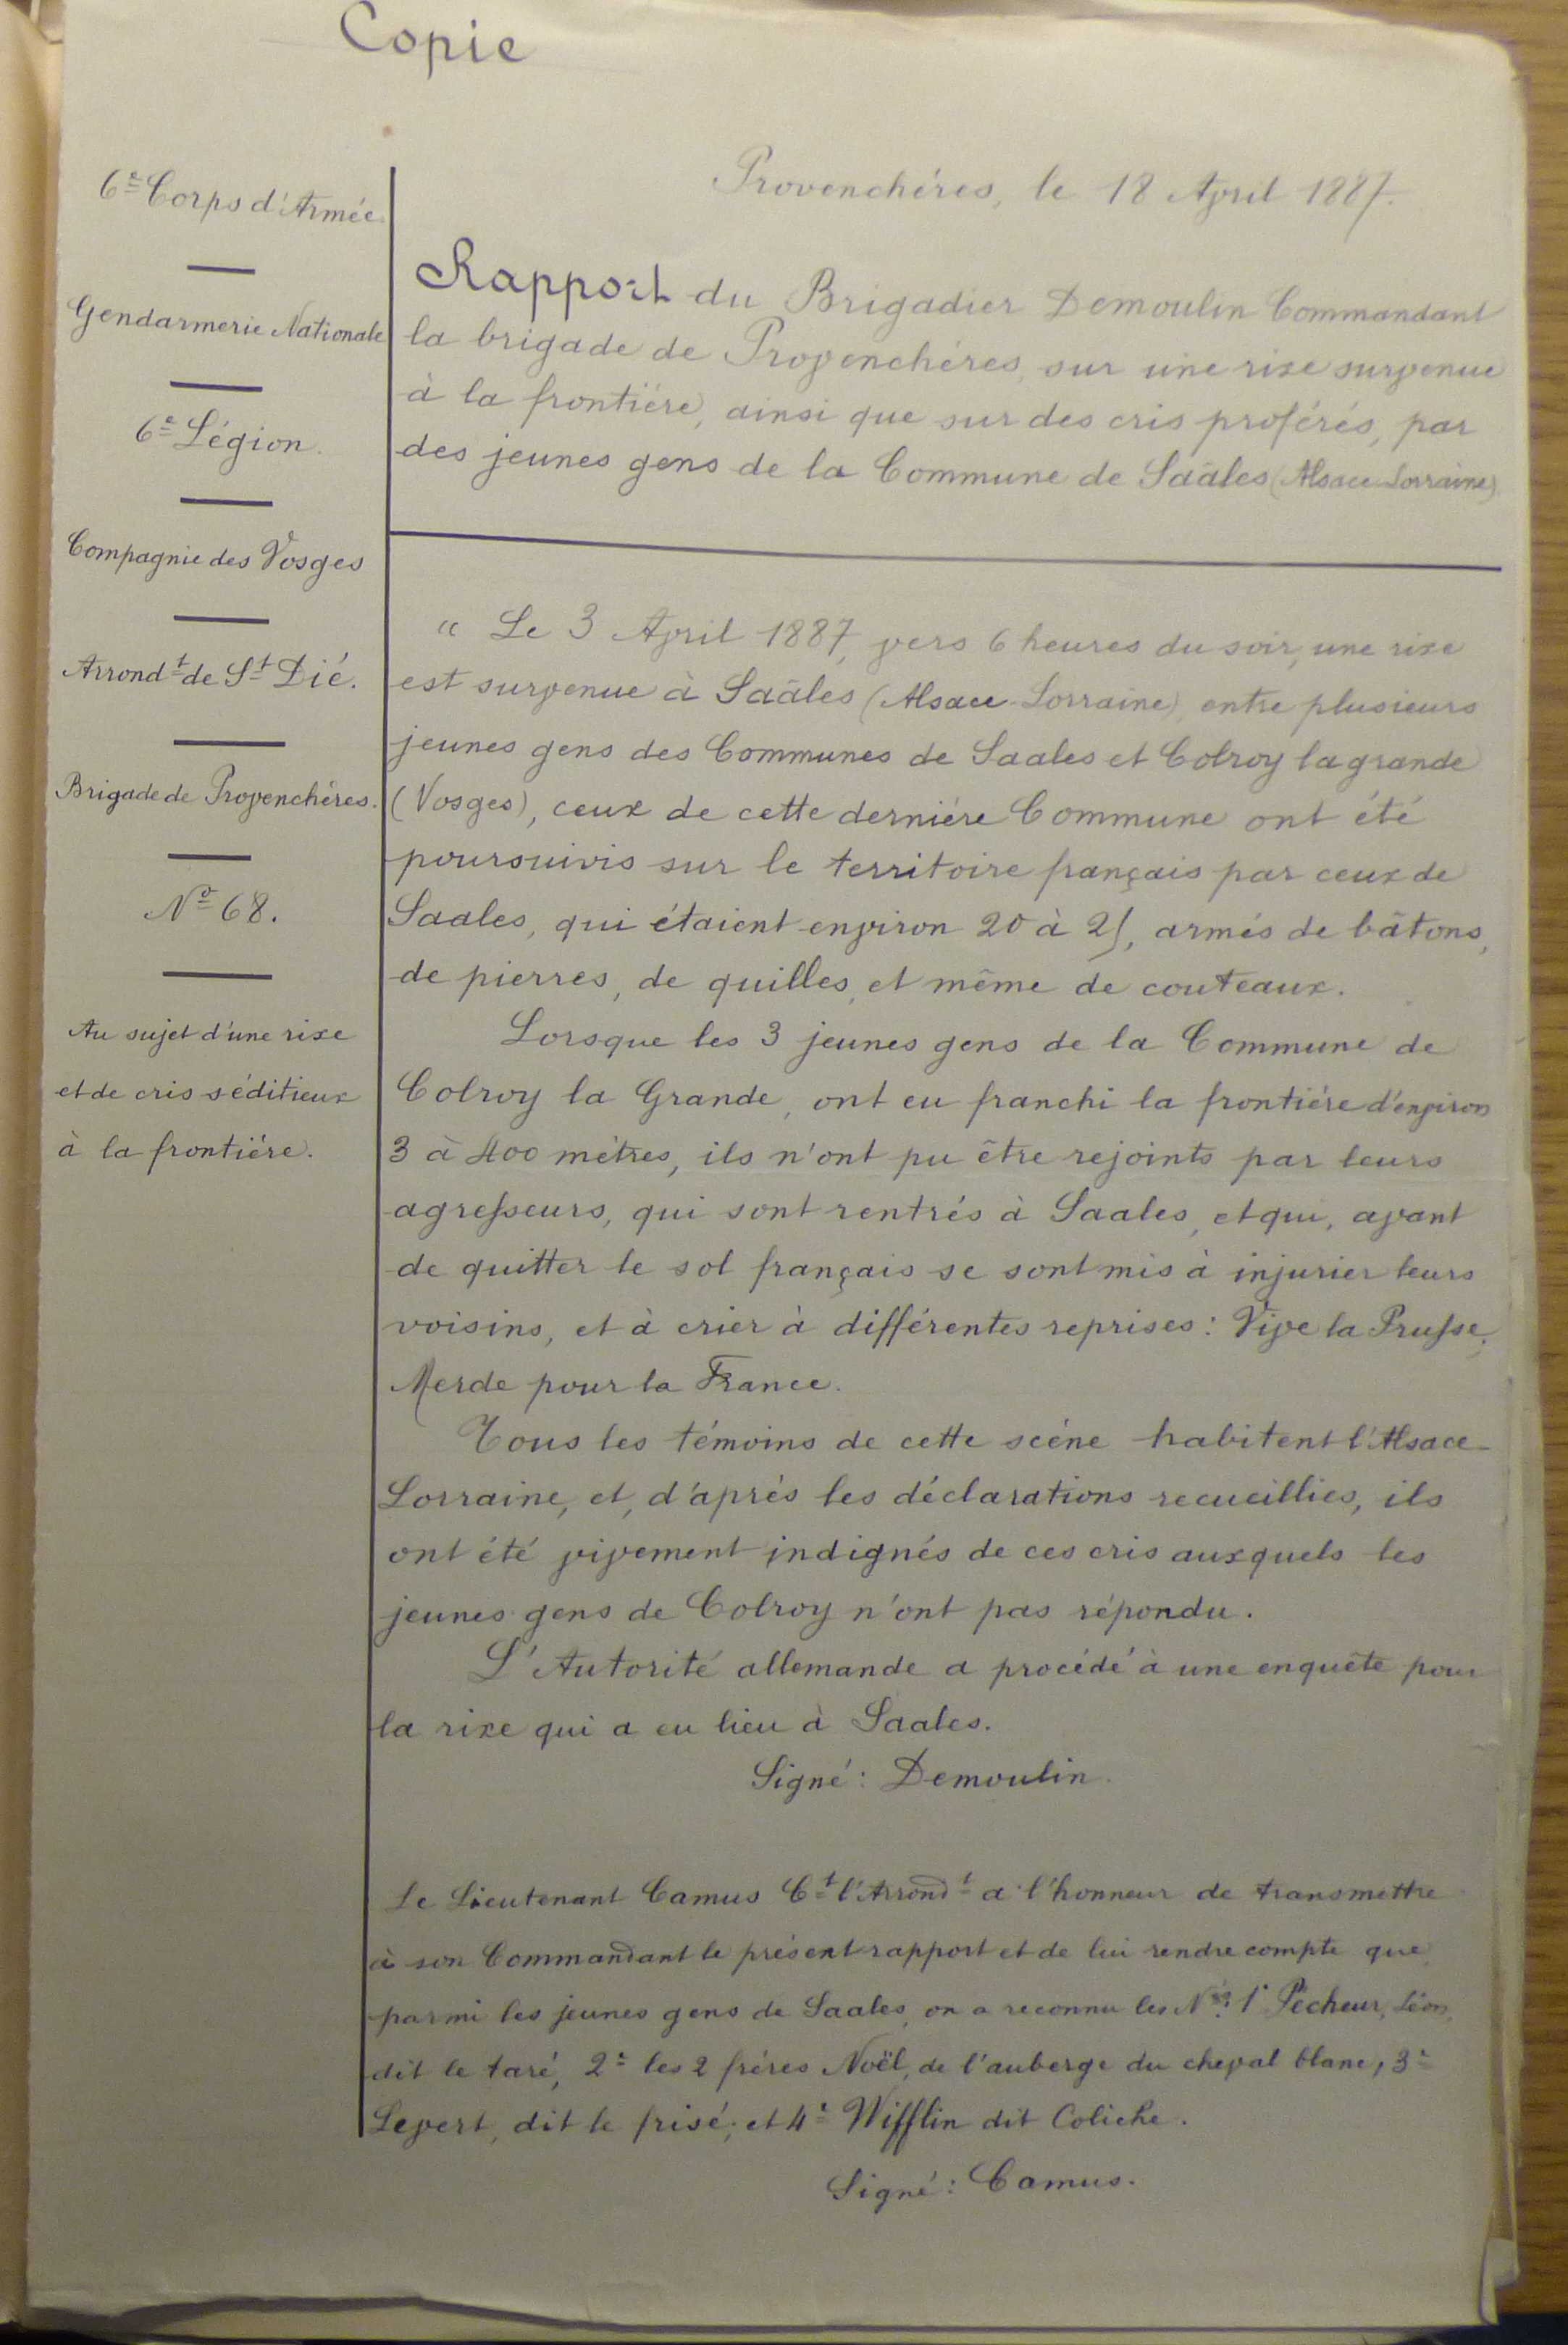 Copie
6e Corps d'Armée
Gendarmerie Nationale
6e Légion.
Compagnie des Vosges
Arrondt de St Dié.
Brigade de Provenchères.
No 68.
Au sujet d'une rixe
et de cris séditieux
à la frontière.
Provenchères, le 18 April 1887.
Rapport du Brigadier Demoulin Commandant
la brigade de Provenchères, sur une rixe survenue
à la frontière, ainsi que sur des cris proférés, par
des jeunes gens de la Commune de Saâles (Alsace-Lorraine)
" Le 3 April 1887, vers 6 heures du soir, une rixe
est survenue à Saâles (Alsace-Lorraine), entre plusieurs
jeunes gens des Communes de Saales et Colroy la grande
(Vosges), ceux de cette dernière Commune ont été
poursuivis sur le territoire français par ceux de
Saales, qui étaient environ 20 à 25, armés de bâtons,
de pierres, de quilles, et même de couteaux.
Lorsque les 3 jeunes gens de la Commune de
Colroy la Grande, ont eu franchi la frontière d'environ
3 à 400 mètres, ils n'ont pu être rejoints par leurs
agresseurs, qui sont rentrés à Saales, et qui, avant
de quitter le sol français se sont mis à injurier leurs
voisins, et à crier à différentes reprises: Vive la Prusse,
Merde pour la France.
Tous les témoins de cette scène habitent l'Alsace-
Lorraine, et, d'après les déclarations recueillies, ils
ont été vivement indignés de ces cris auxquels les
jeunes gens de Colroy n'ont pas répondu.
L'Autorité allemande a procédé à une enquête pour
la rixe qui a eu lieu à Saales.
Signé: Demoulin.
Le Lieutenant Camus Ct l'Arrondt a l'honneur de transmettre
à son Commandant le présent rapport et de lui rendre compte que,
parmi les jeunes gens de Saales, on a reconnu les Nés: 1° Pécheur, Léon,
dit le taré, 2e les 2 frères Noël, de l'auberge du cheval blanc, 3e
Levert, dit le frisé; et 4e Wifflin dit Coliche.
Signé: Camus.